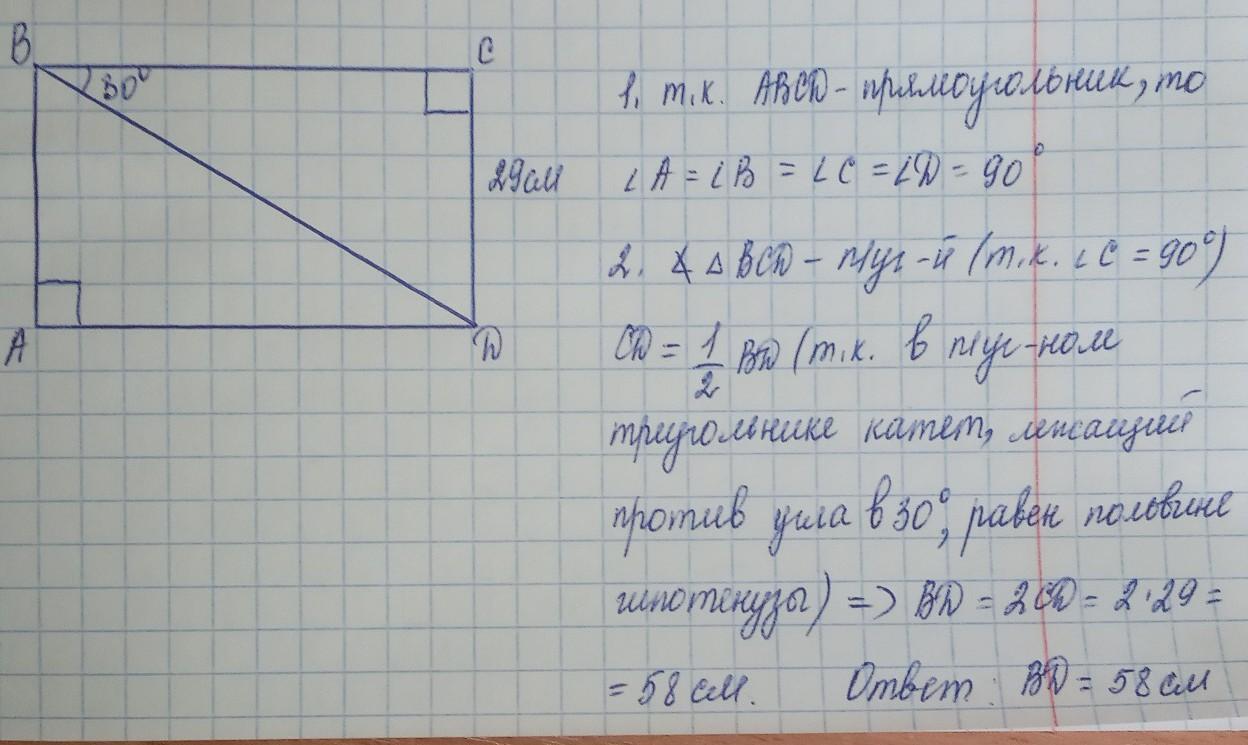 B
C
30°
29см
A
D
1. т.к. ABCD - прямоугольник, то
∠A = ∠B = ∠C = ∠D = 90°
2. ∢ △ BCD - п/уг-й (т.к. ∠C = 90°)
CD = 1/2 BD (т.к. в п/уг-ном
треугольнике катет, лежащий
против угла в 30°, равен половине
гипотенузы) => BD = 2CD = 2·29 =
= 58 см. Ответ: BD = 58 см